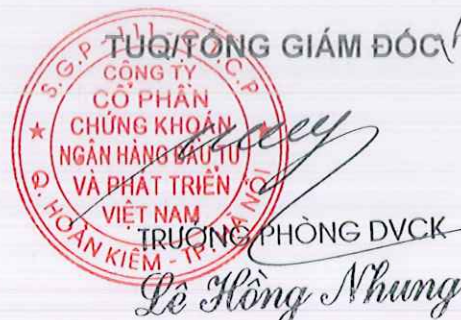 TUQ/TỔNG GIÁM ĐỐC
CÔNG TY
CỔ PHẦN
CHỨNG KHOÁN
NGÂN HÀNG ĐẦU TƯ
VÀ PHÁT TRIỂN
VIỆT NAM
Q. HOÀN KIẾM - TP. HÀ NỘI
TRƯỞNG PHÒNG DVCK
Lê Hồng Nhung